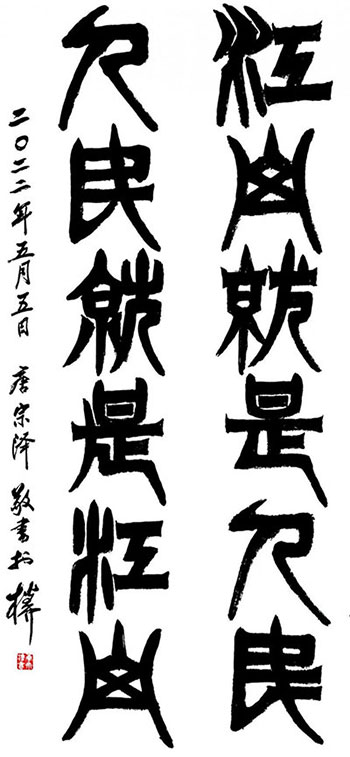 江山就是人民
人民就是江山
二〇二二年五月五日 唐宗泽 敬書於